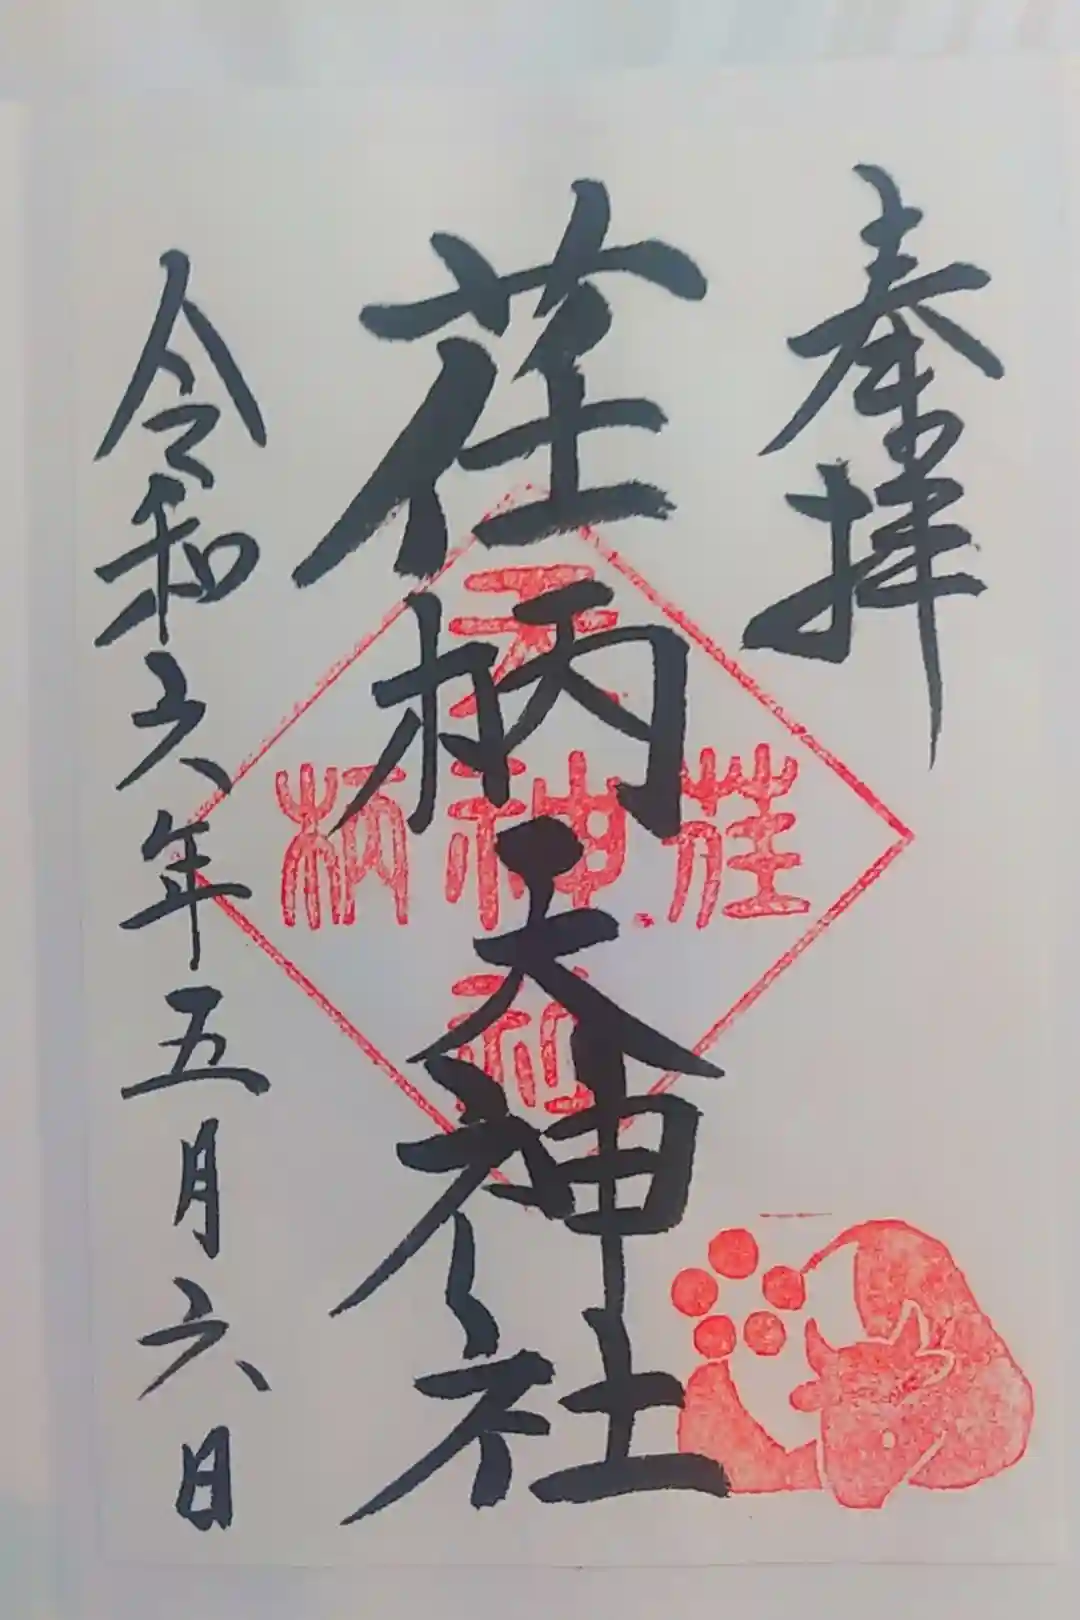 奉拝
荏柄天神社
荏柄天神社
令和六年五月六日